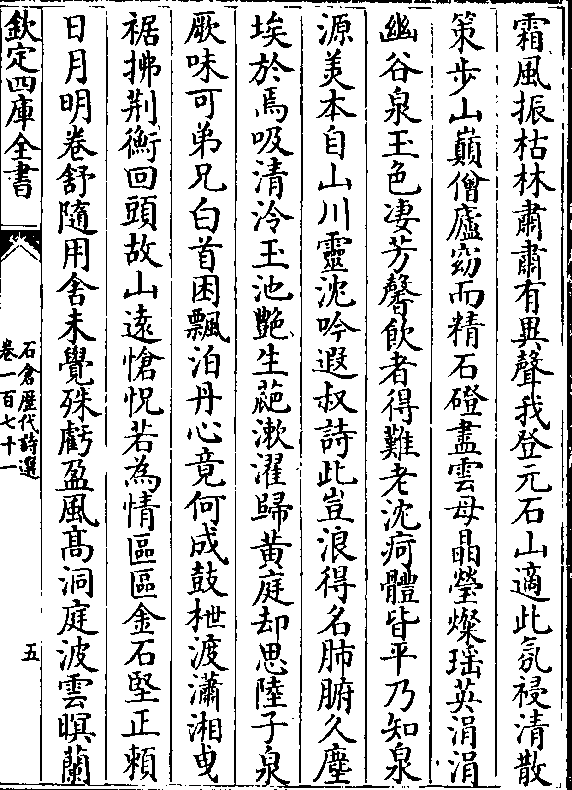 霜風振枯林肅肅有異聲我登元石山適此氛祲清散
策步山巔僧廬窈而精石磴盡雲母晶瑩燦瑶英涓涓
幽谷泉玉色凄芳馨飲者得難老沈痾體皆平乃知泉
源羙本自山川靈沈吟遐叔詩此豈浪得名肺腑久塵
埃於焉吸清泠玉池艷生葩漱濯歸黄庭却思陸子泉
厥味可弟兄白首困飄泊丹心竟何成鼓枻渡瀟湘曵
裾拂荆衡回頭故山遠愴怳若為情區區金石堅正頼
日月明卷舒隨用舍未覺殊虧盈風髙洞庭波雲暝蘭
欽定四庫全書
石倉歴代詩選
卷一百七十一
五